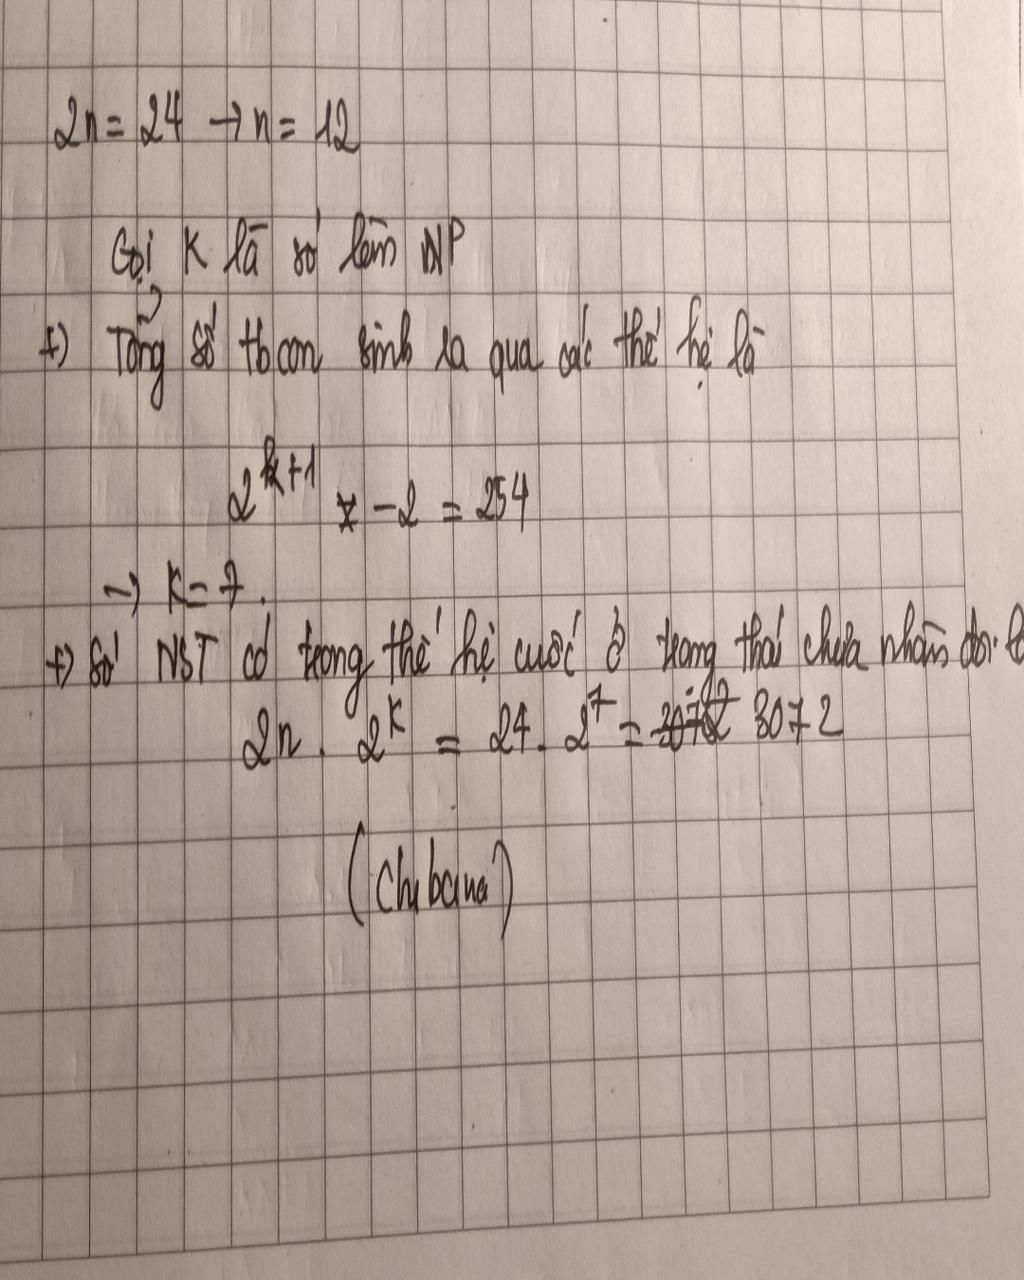 2n = 24 → n = 12
Gọi K là số lần NP
+) Tổng số tb con sinh ra qua các thế hệ là
2^{k+1} - 2 = 254
→ K = 7.
+) Số NST có trong thế hệ cuối ở trạng thái chưa nhân đôi
2n . 2^k = 24 . 2^7 = 3072